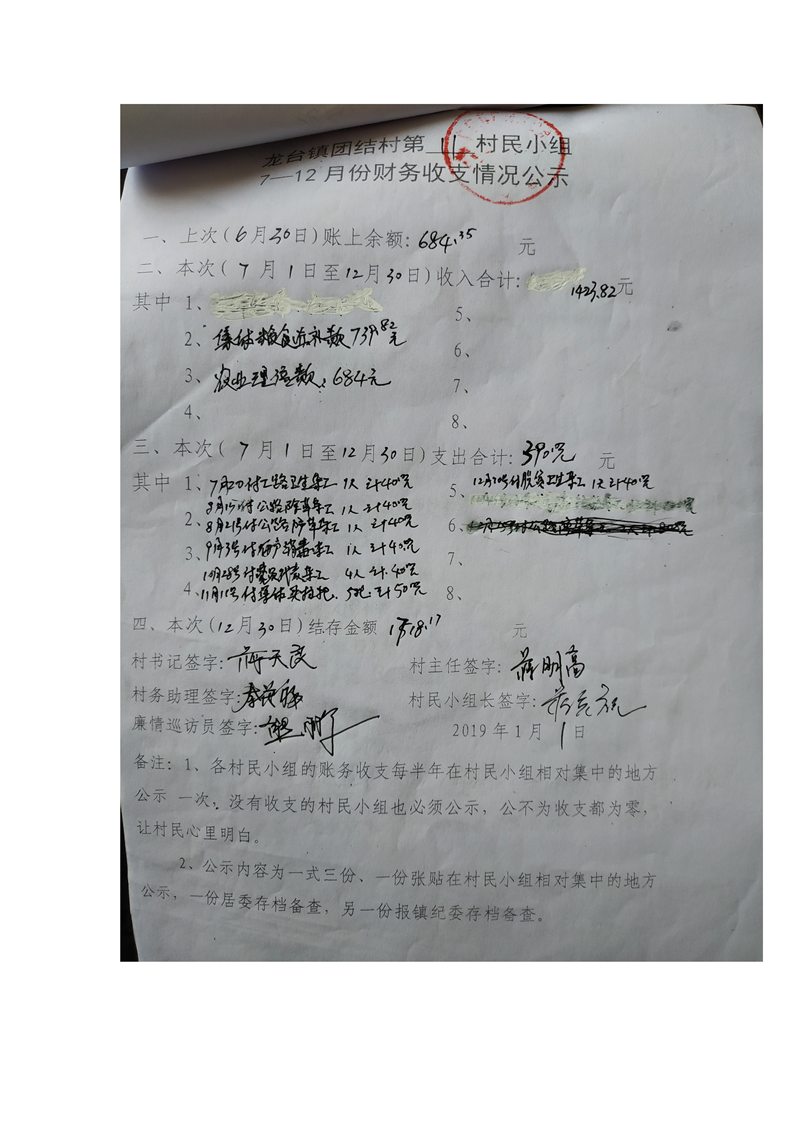 龙台镇团结村第 11 村民小组
7—12月份财务收支情况公示
一、上次(6月30日)账上余额: 684.35 元
二、本次(7月1日至12月30日)收入合计: 1423.82元
其中 1、 5、
2、集体粮食直补款739.82元 6、
3、农业理赔款:684元 7、
4、 8、
三、本次(7月1日至12月30日)支出合计:390元 元
其中 1、7月20付公路卫生集工 1人 计40元 5、 1人计40元
付公路除草集工 1人 计40元
2、8月21号付公路除草集工 1人 计40元 6、
3、9月3号付 消毒集工 1人 计40元 7、
10月28号付党员代表集工 4人 计 40元
4、11月11号付集体 5把 计50元 8、
四、本次(12月30日)结存金额 1718.17 元
村书记签字:蒋天民 村主任签字:蒋明高
村务助理签字: 村民小组长签字:
廉情巡访员签字: 2019年1月1日
备注:1、各村民小组的账务收支每半年在村民小组相对集中的地方
公示 一次,没有收支的村民小组也必须公示,公不为收支都为零,
让村民心里明白。
2、公示内容为一式三份、一份张贴在村民小组相对集中的地方
公示,一份居委存档备查,另一份报镇纪委存档备查。